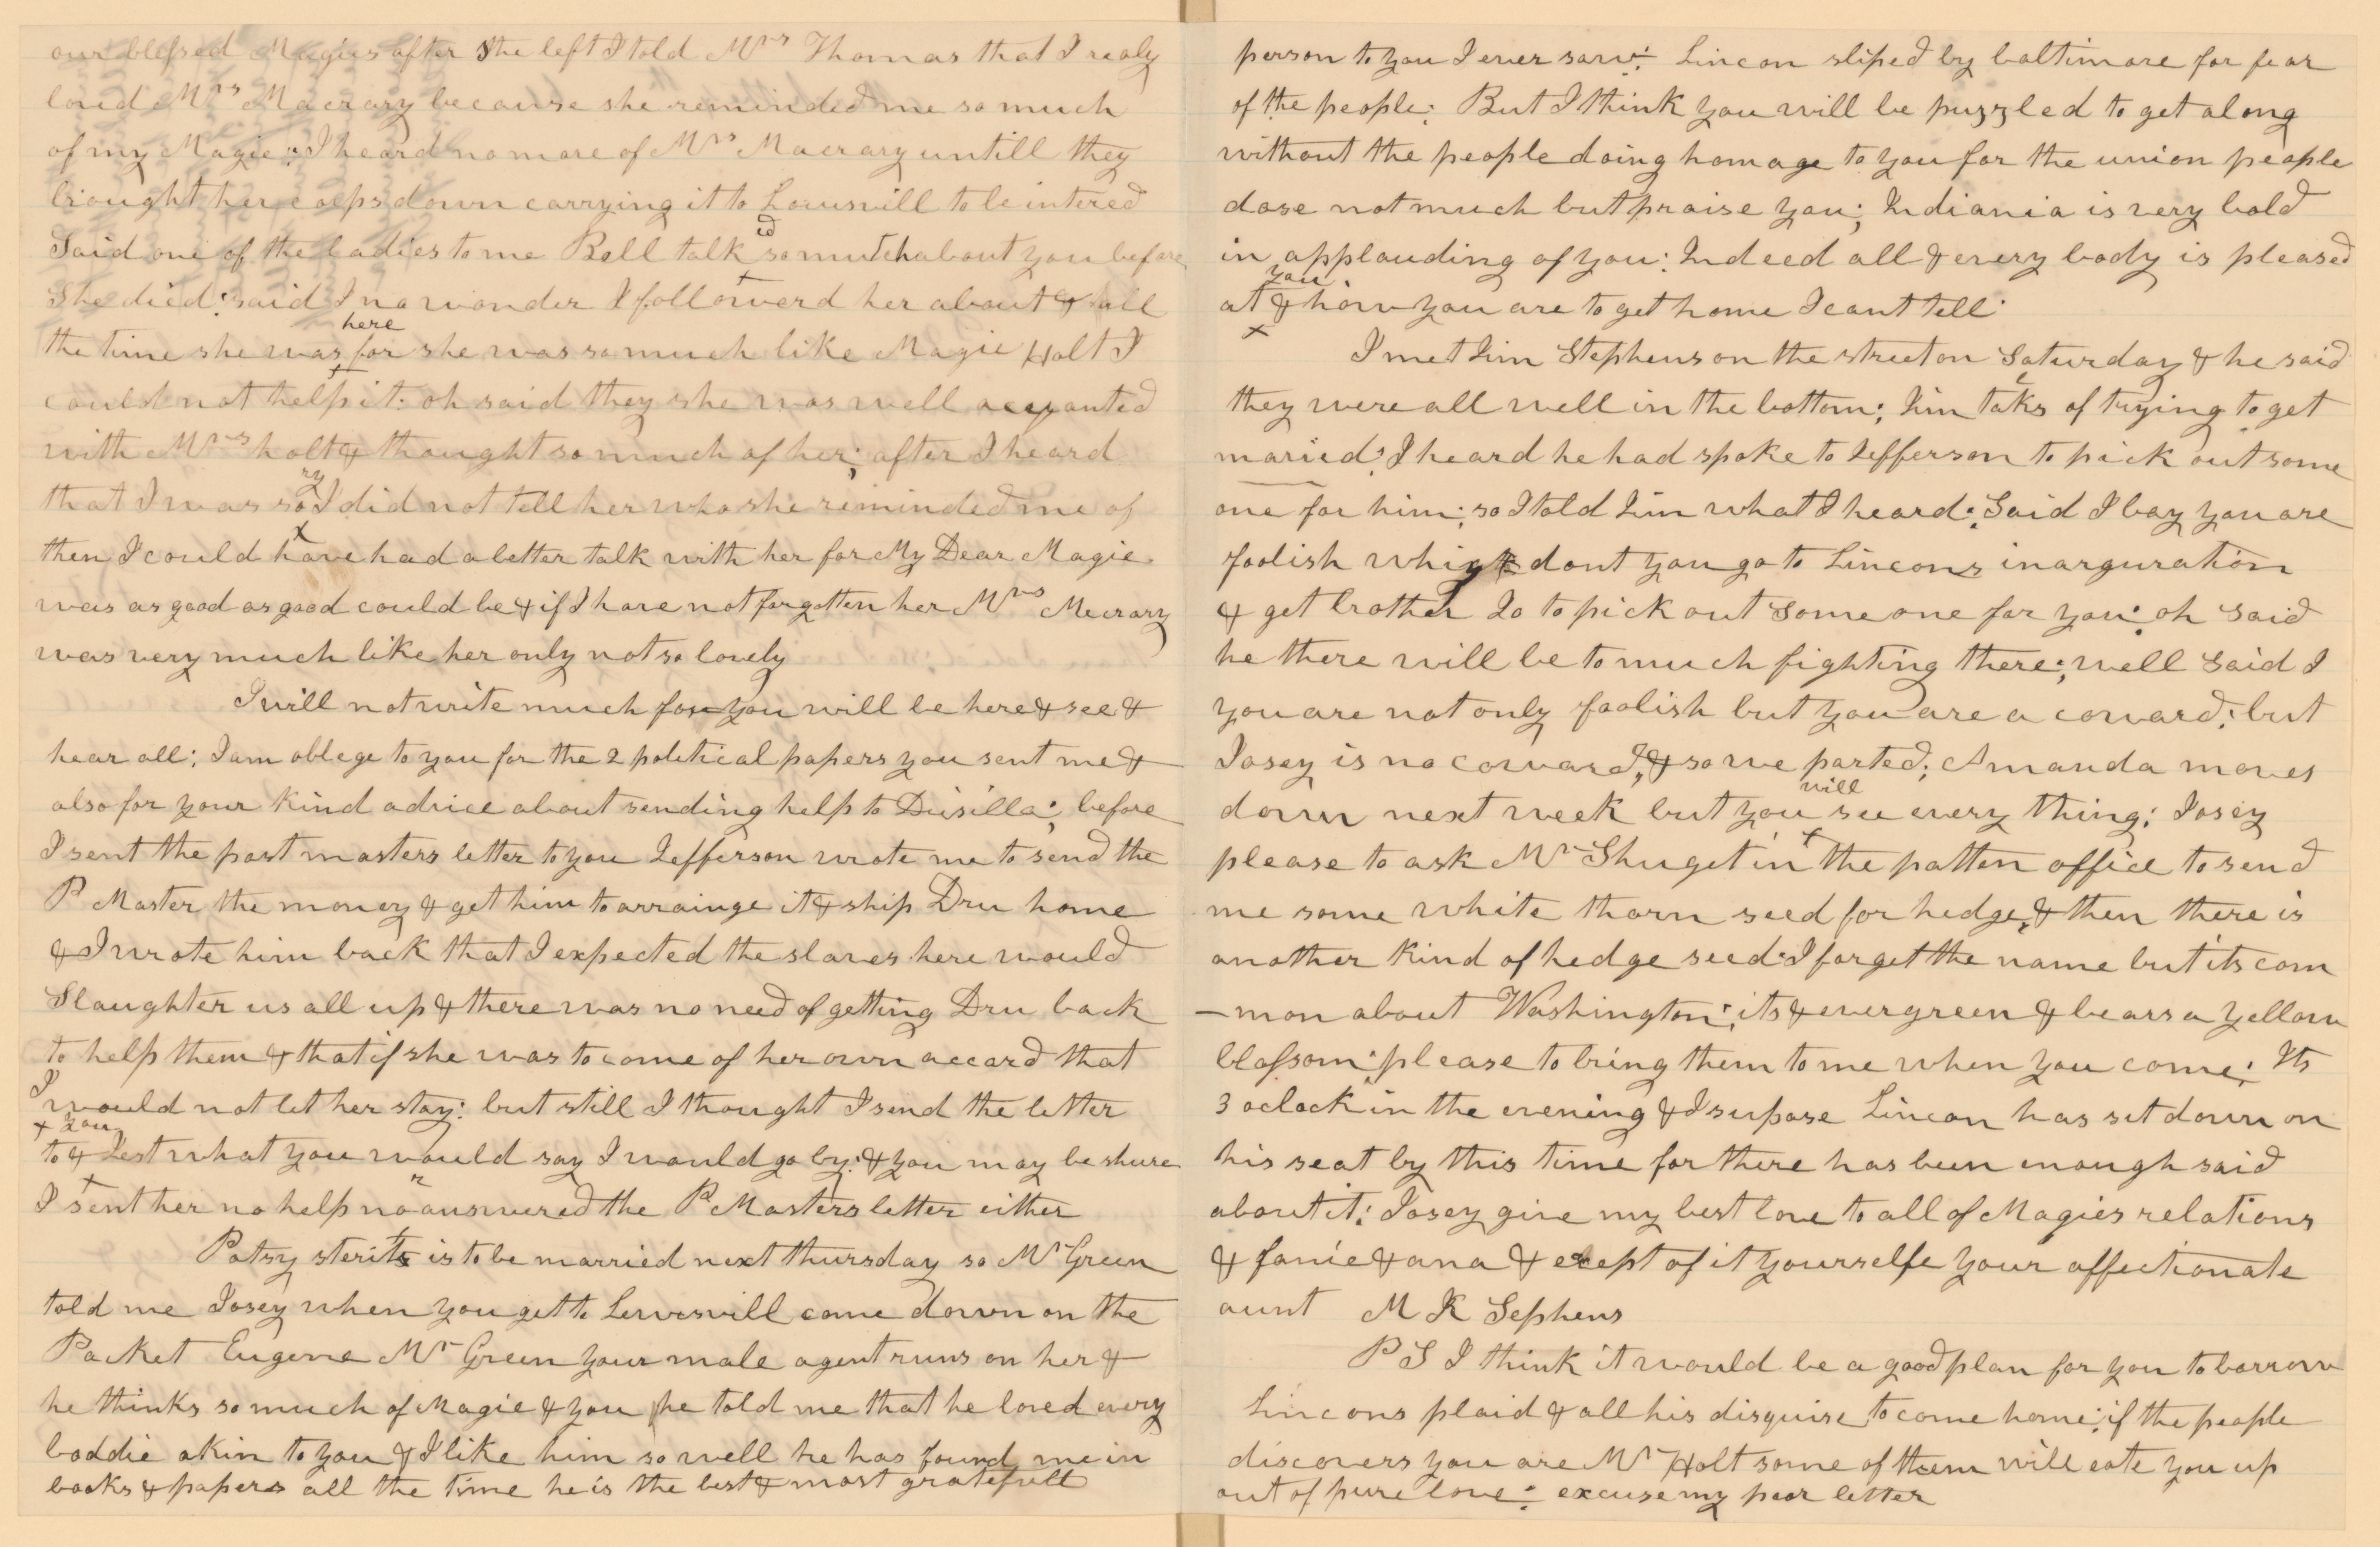 our blessed Magies after she left I told Mrs Thomas that I realy
loved Mrs Macrary because she reminded me so much
of my Magie: I heard no more of Mrs Macrary untill they
brought her corps down carrying it to Louisvill to be intered
Said one of the Ladies to me Bell talk so mutch about you before
ed
She died: said I no wonder I followerd her about & all
the time she was for she was so much like Magie Holt I
here
could not help it: oh said they she was well acqanted
with Mrs holt & thought so much of her; after I heard
that I was so I did not tell her who she reminded me of
ry
then I could have had a better talk with her for My Dear Magie
was as good as good could be & if I have not forgotten her Mrs Mecrary
was very much like her only not so lovely
I will not write much for you will be here & see &
hear all; I am oblege to you for the 2 political papers you sent me &
also for your kind advice about sending help to Drisilla; before
I sent the post masters letter to you Jefferson wrote me to send the
P Master the money & get him to arrainge it & ship Dru home
& I wrote him back that I expected the slaves here would
Slaughter us all up & there was no need of getting Dru back
to help them & that if she was to come of her own accord that
I would not let her stay: but still I thought I send the letter
to & Lest what you would say I would go by: & you may be shure
you
I sent her no help no answered the P Masters letter either
r
Patsy sterits is to be married next thursday so Mr Green
told me Josey when you get to Lewisvill come down on the
Packet Eugene Mr Green your male agent runs on her &
he thinks so much of Magie & you he told me that he loved every
boddie akin to you & I like him so well he has found me in
books & papers all the time he is the best & most gratefull
person to you I ever saw: Lincon sliped by baltimore for fear
of the people: But I think you will be puzzled to get along
without the people doing homage to you for the union people
dose not much but praise you; Indiania is very bold
in applauding of you: Indeed all & every body is pleased
at & how you are to get home I cant tell:
you
I met Jim Stephens on the street on Saturday & he said
they were all well in the bottom; Jim taks of trying to get
maried: I heard he had spoke to Jefferson to pick out some
one for him; so I told Jim what I heard: Said I boy you are
foolish why dont you go to Lincons inarguration
& get brother Jo to pick out some one for you: oh said
he there will be to much fighting there; well said I
you are not only foolish but you are a coward: but
Josey is no coward, & so we parted; Amanda moves
down next week but you see every thing: Josey
will
please to ask Mr Shuget in the patten office to send
me some white thorn seed for hedge, & then there is
another kind of hedge seed: I forget the name but its com
-mon about Washington; its evergreen & bears a yellow
blossom: please to bring them to me when you come: Its
3 oclock in the evening & I supose Lincon has set down on
his seat by this time for there has been enough said
about it: Josey give my best love to all of Magies relations
& fanie & ana & exept of it yourselfe your affectionate
aunt M K Sephens
P S I think it would be a good plan for you to borrow
Lincons plaid & all his disguise to come home: if the people
discovers you are Mr Holt some of them will eate you up
out of pure love: excuse my poor letter